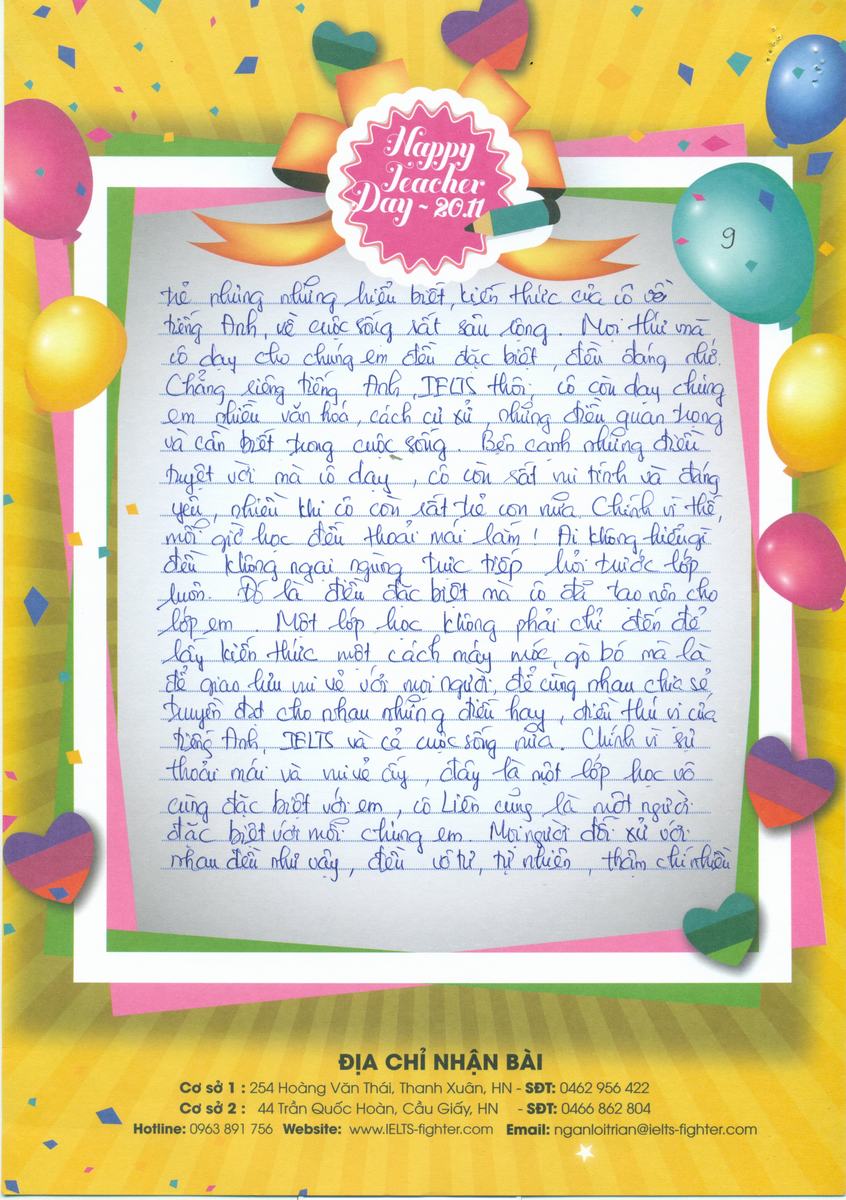 Happy
Teacher
Day ~ 20.11
9
trẻ nhưng những hiểu biết, kiến thức của cô về
tiếng Anh, về cuộc sống rất sâu rộng. Mọi thứ mà
cô dạy cho chúng em đều đặc biệt, đều đáng nhớ.
Chẳng riêng tiếng Anh, IELTS thôi, cô còn dạy chúng
em nhiều văn hoá, cách cư xử, những điều quan trọng
và cần biết trong cuộc sống. Bên cạnh những điều
tuyệt vời mà cô dạy, cô còn rất vui tính và đáng
yêu, nhiều khi cô còn rất trẻ con nữa. Chính vì thế,
mỗi giờ học đều thoải mái lắm! Ai không hiểu gì
đều không ngại ngùng trực tiếp hỏi trước lớp
luôn. Đó là điều đặc biệt mà cô đã tạo nên cho
lớp em. Một lớp học không phải chỉ đến để
lấy kiến thức một cách máy móc, gò bó mà là
để giao lưu vui vẻ với mọi người, để cùng nhau chia sẻ,
truyền đạt cho nhau những điều hay, điều thú vị của
tiếng Anh, IELTS và cả cuộc sống nữa. Chính vì sự
thoải mái và vui vẻ ấy, đây là một lớp học vô
cùng đặc biệt với em, cô Liên cũng là một người
đặc biệt với mỗi chúng em. Mọi người đối xử với
nhau đều như vậy, đều vô tư, tự nhiên, thậm chí nhiều
ĐỊA CHỈ NHẬN BÀI
Cơ sở 1 : 254 Hoàng Văn Thái, Thanh Xuân, HN - SĐT: 0462 956 422
Cơ sở 2 : 44 Trần Quốc Hoàn, Cầu Giấy, HN - SĐT: 0466 862 804
Hotline: 0963 891 756 Website: www.IELTS-fighter.com Email: nganloitrian@ielts-fighter.com